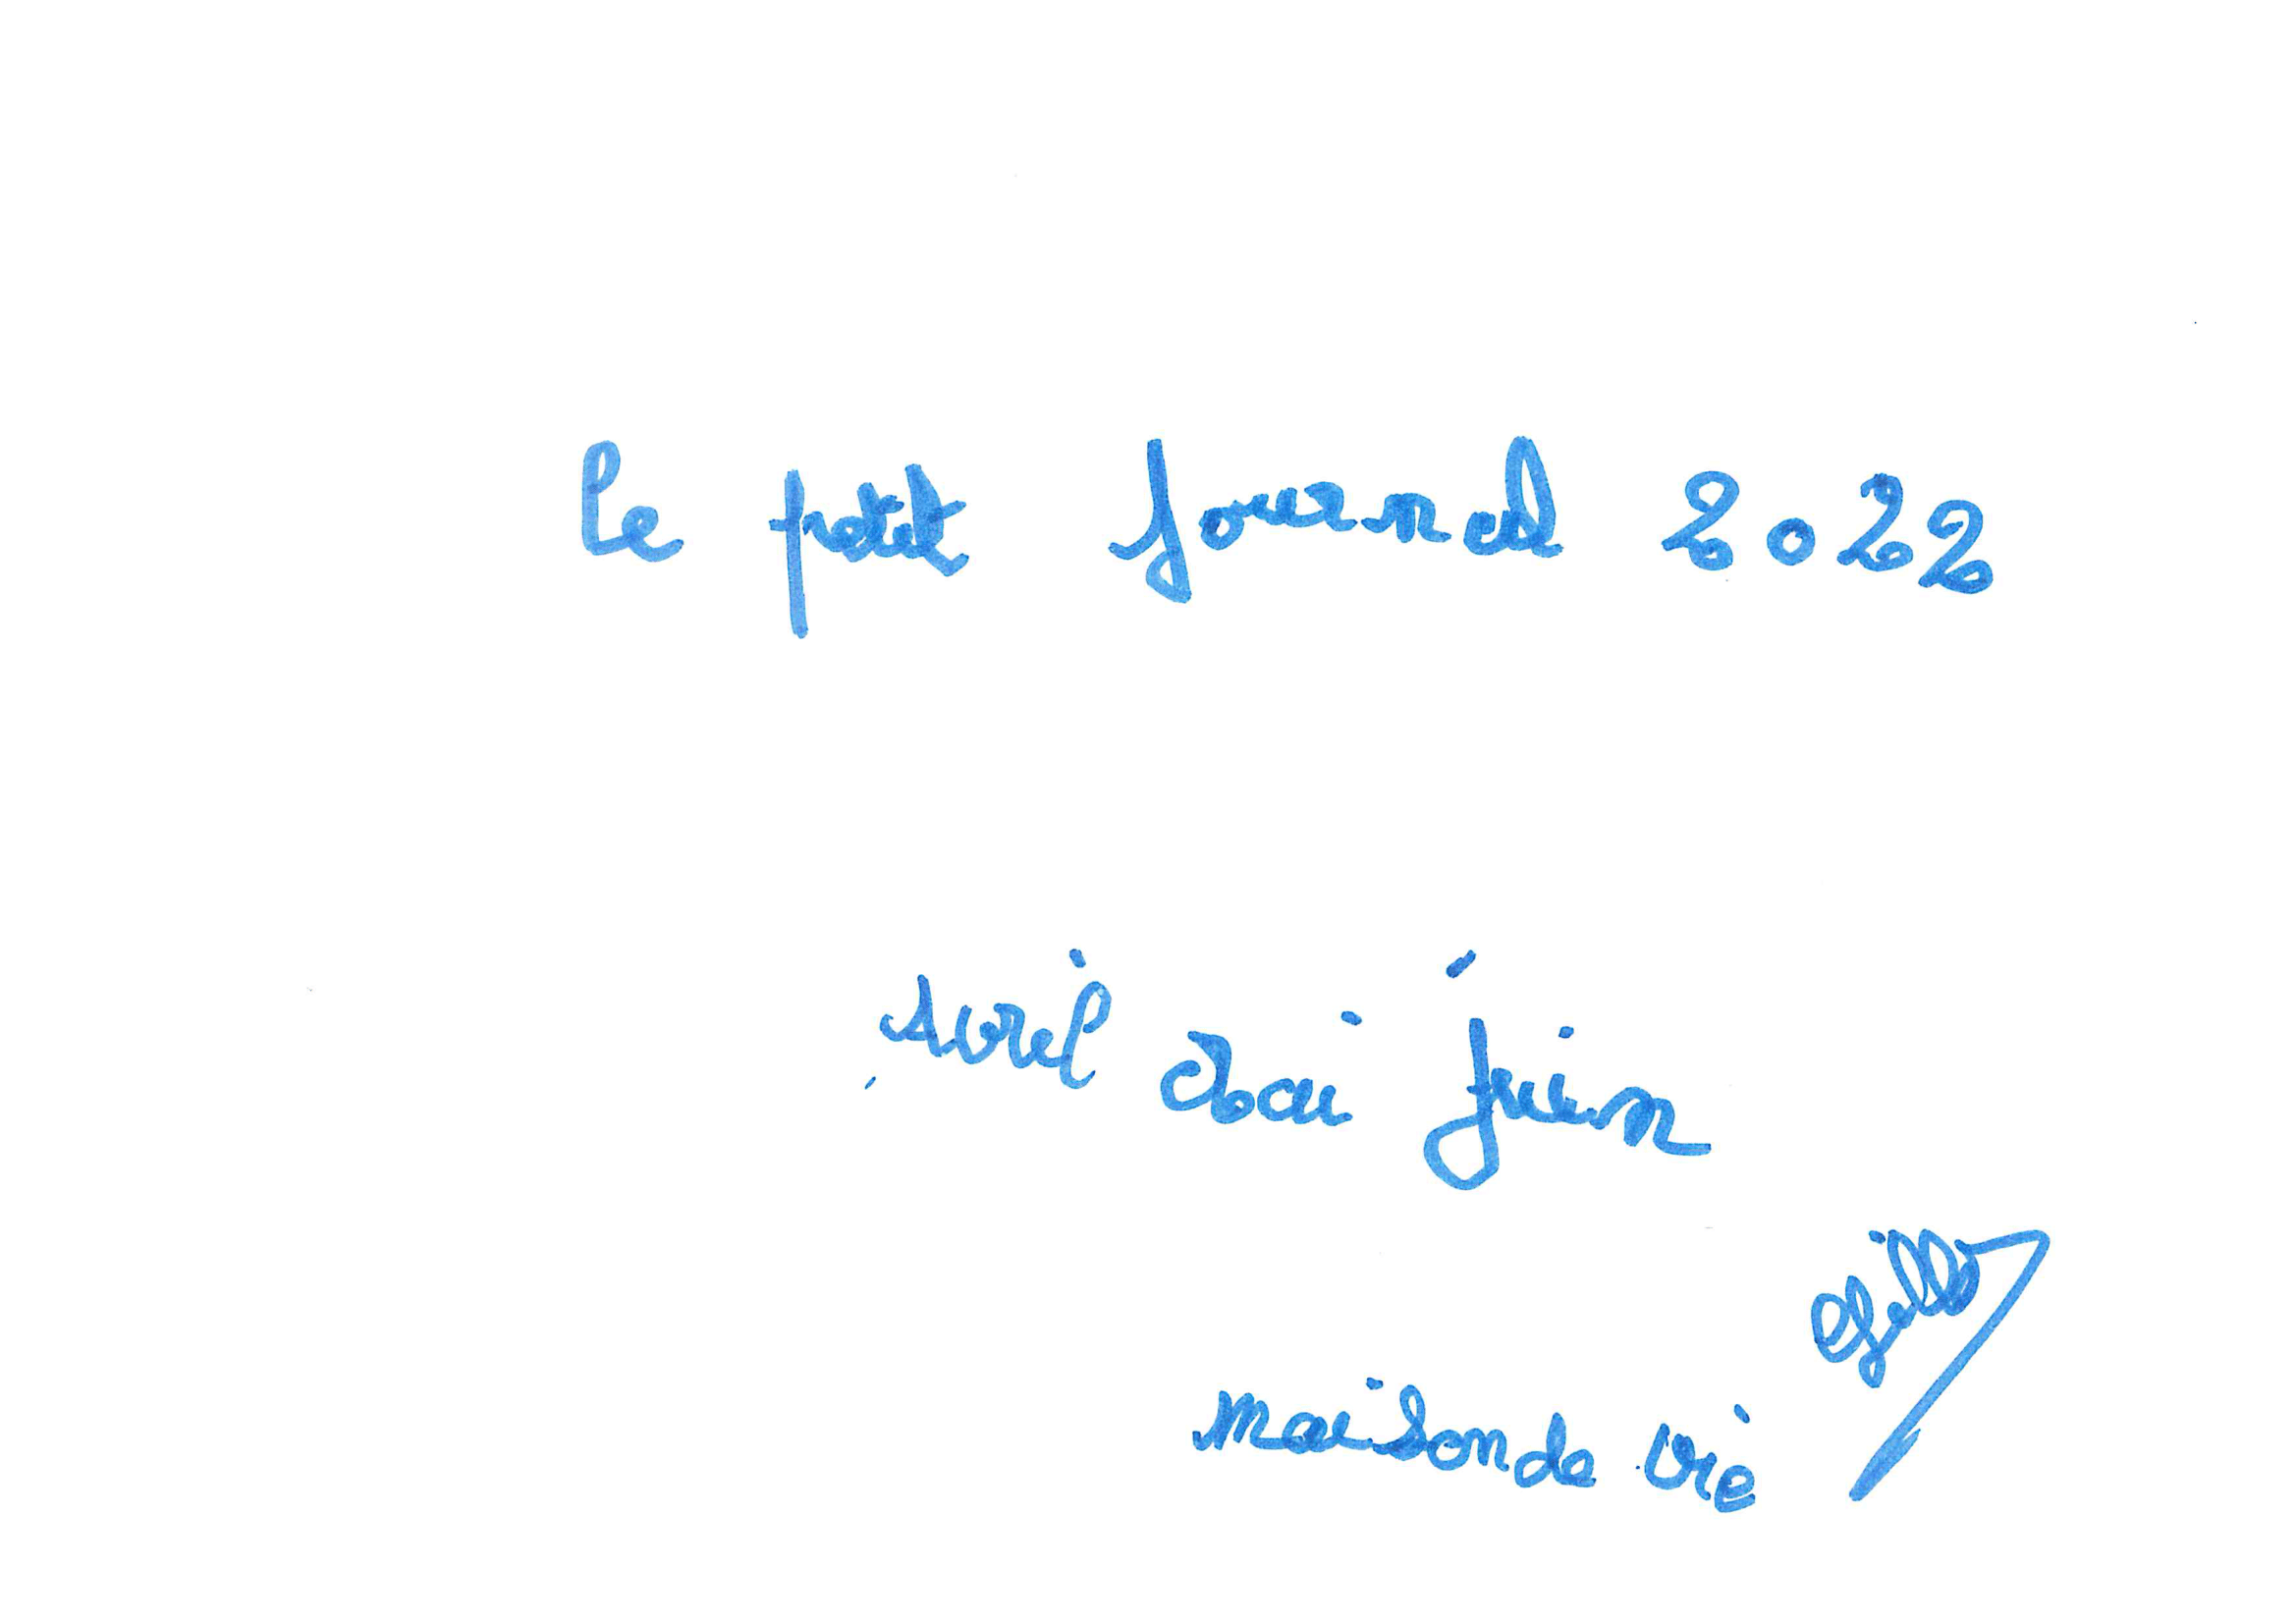 le petit journal 2022
Avril Mai juin
maison de vie